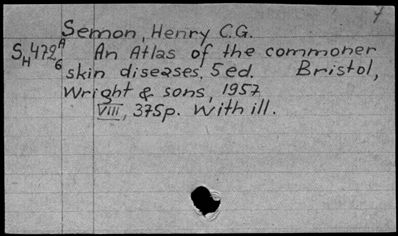 Semon, Henry C.G.
SH472 A6 An Atlas of the commoner
skin diseases. 5 ed. Bristol,
Wright & sons, 1957
VIII, 375p. With ill.